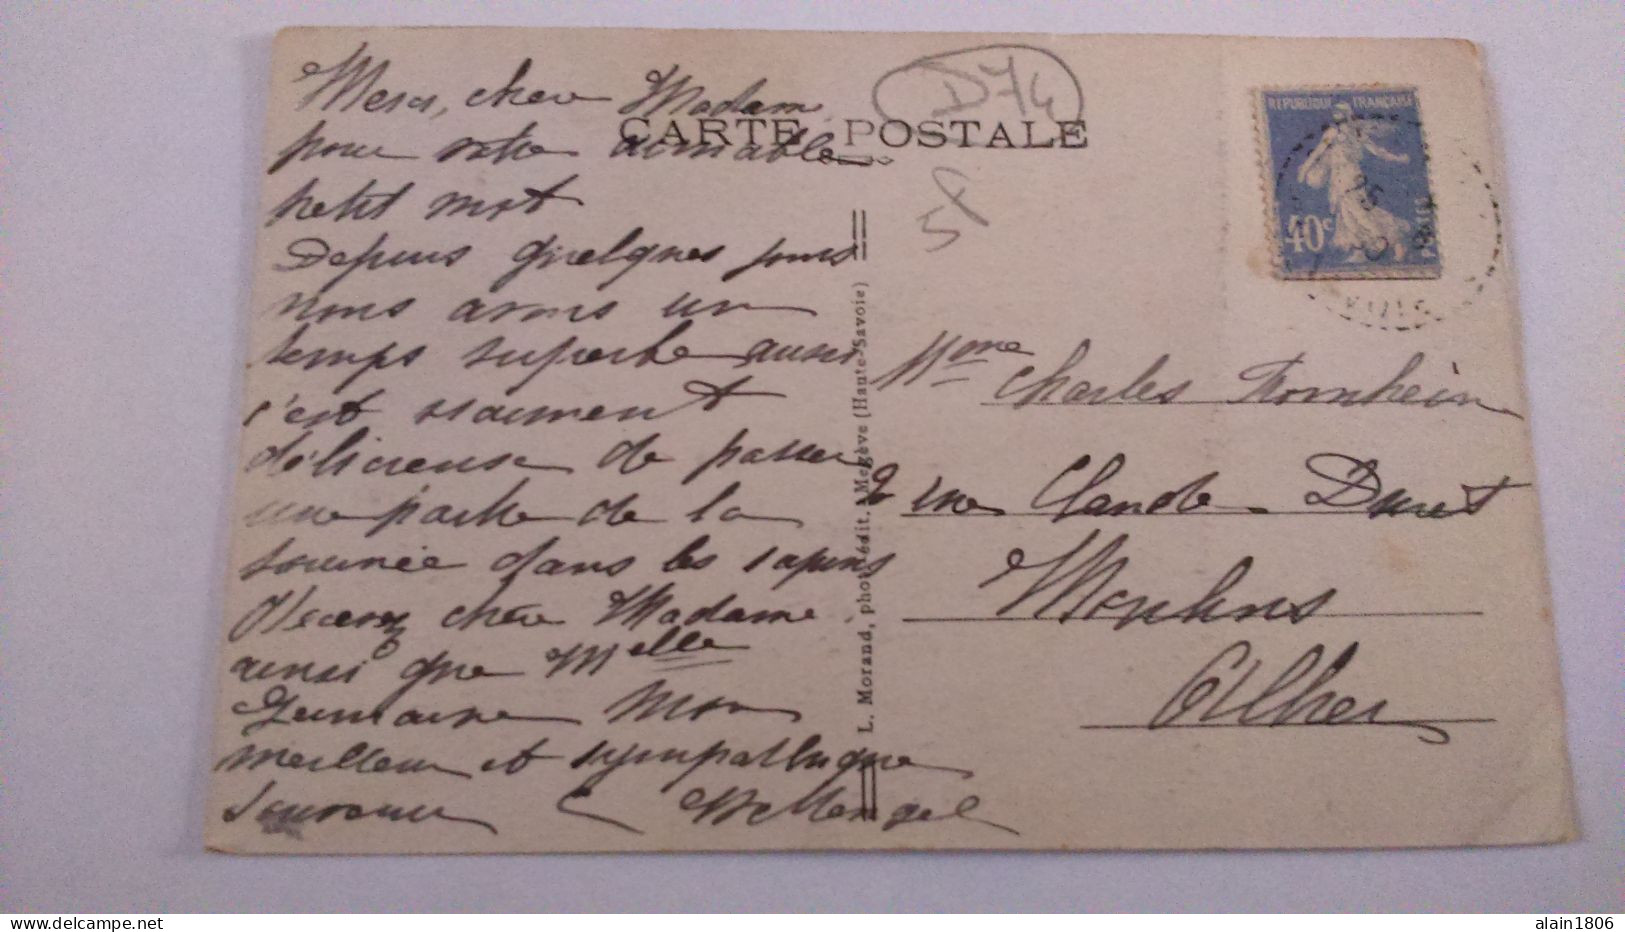 Merci, chère Madame
pour votre aimable
petit mot
Depuis quelques jours
nous avons un
temps superbe aussi
c'est vraiment
délicieuse de passer
une partie de la
journée dans les sapins
Recevez chère Madame
ainsi que Melle
Germaine mon
meilleur et sympathique
souvenir
CARTE POSTALE
D74
5f
L. Morand, phot. édit. Megève (Haute-Savoie)
REPUBLIQUE FRANÇAISE
40c
POSTES
Mme Charles
2 rue Claude Duret
Moulins
Allier
alain1806